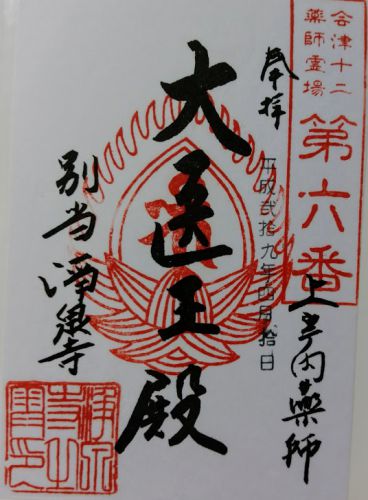 会津十二
薬師霊場
第六番
奉拝
平成弐拾九年四月拾日
上宇内薬師
大医王殿
別当浄泉寺